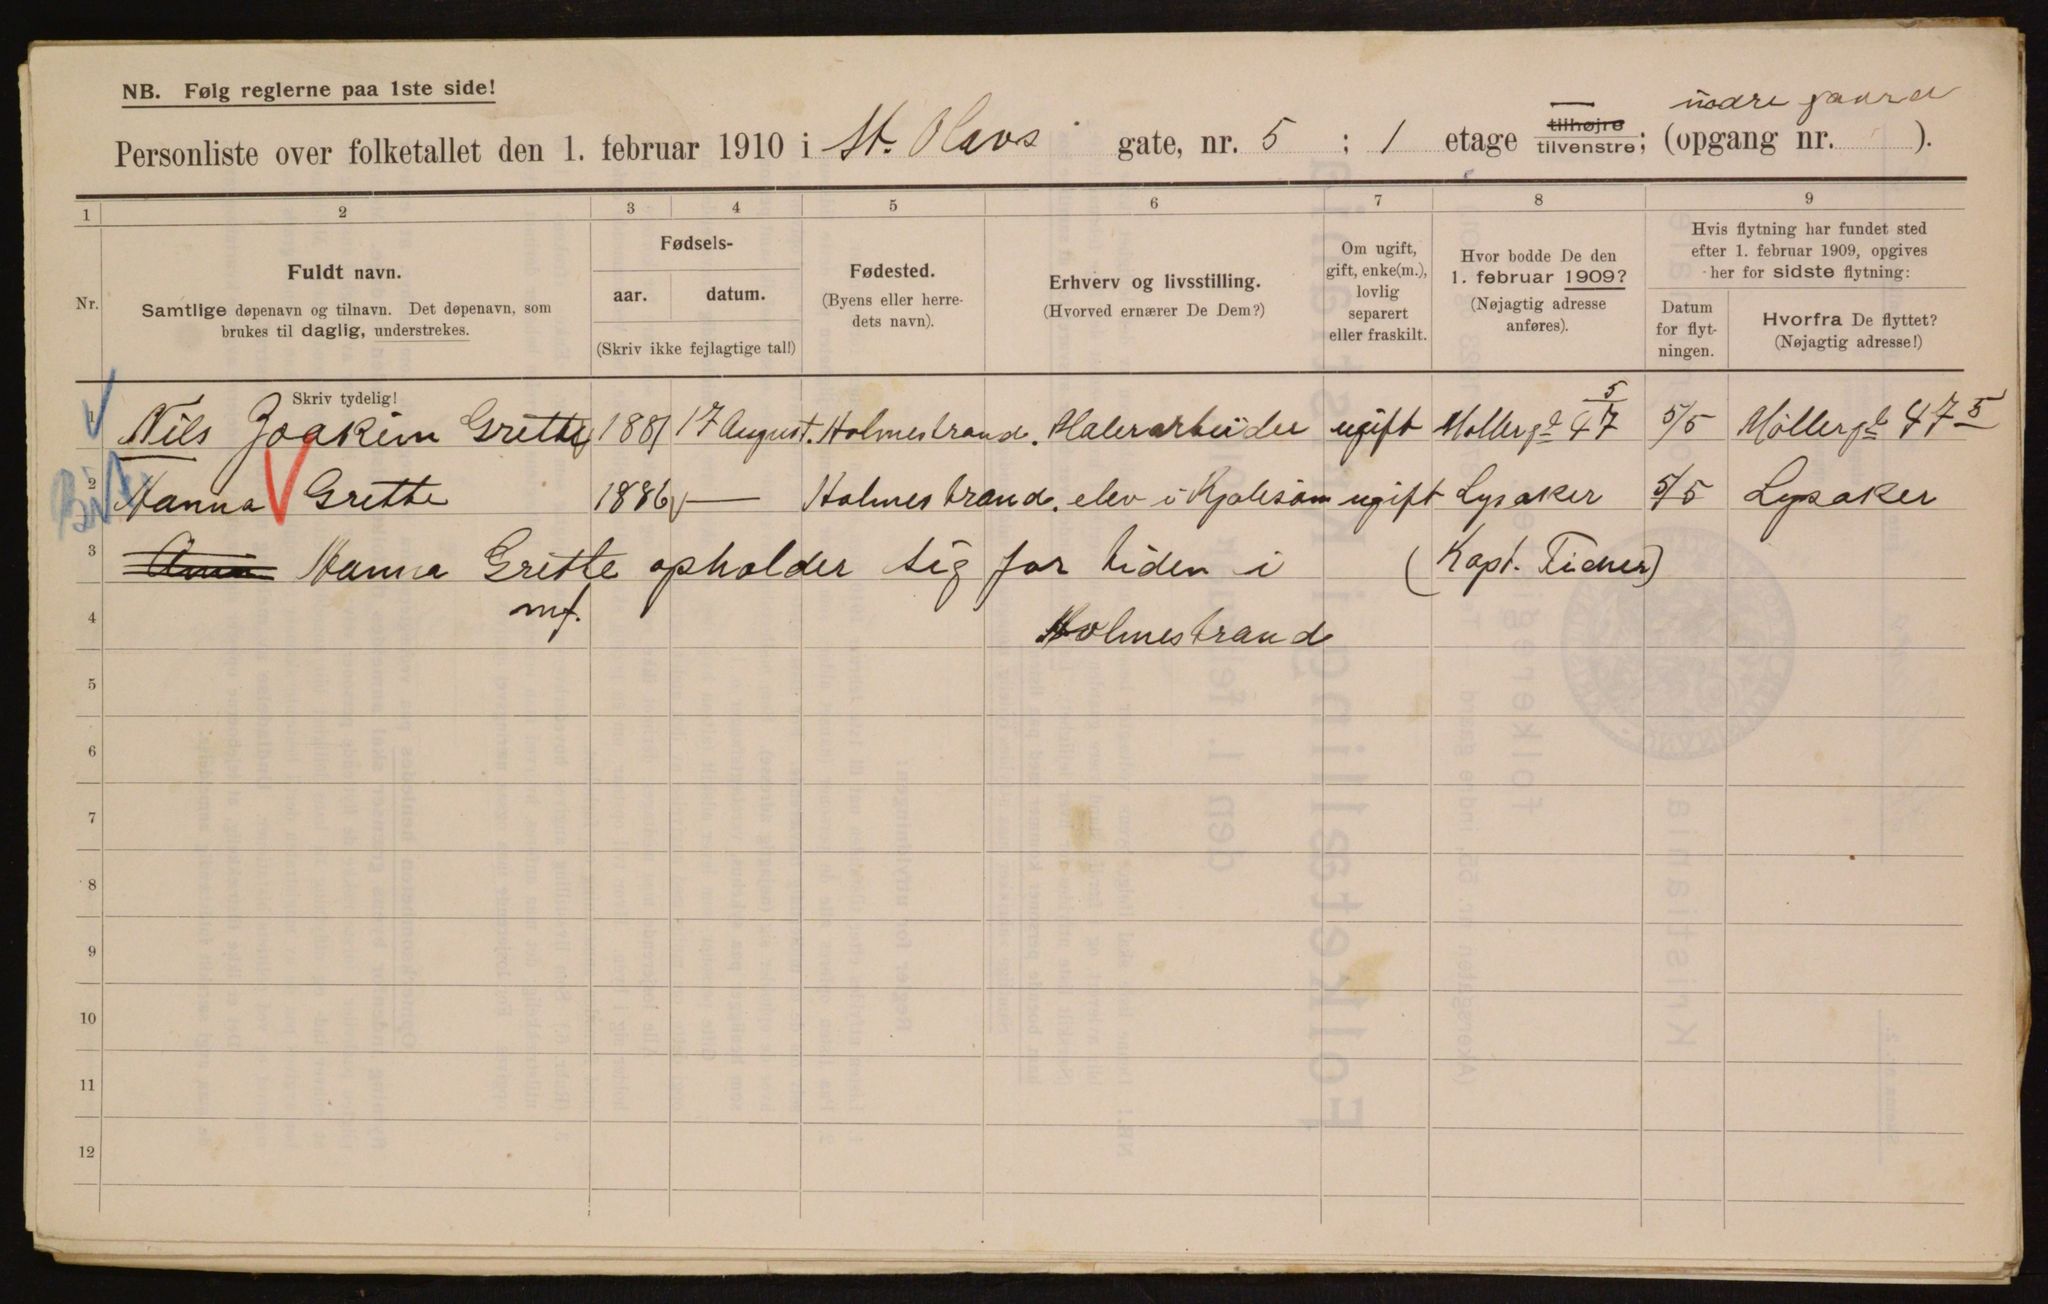 NB. Følg reglerne paa 1ste side!
indre gaard
Personliste over folketallet den 1. februar 1910 i St. Olavs gate, nr. 5 ; 1 etage tilhøjre tilvenstre; (opgang nr. ).
1 2 3 4 5 6 7 8 9
Nr.
Fuldt navn.
Samtlige døpenavn og tilnavn. Det døpenavn, som
brukes til daglig, understrekes.
Fødsels-
aar. datum.
(Skriv ikke fejlagtige tal!)
Fødested.
(Byens eller herre-
dets navn).
Erhverv og livsstilling.
(Hvorved ernærer De Dem?)
Om ugift,
gift, enke(m.),
lovlig
separert
eller fraskilt.
Hvor bodde De den
1. februar 1909?
(Nøjagtig adresse
anføres).
Hvis flytning har fundet sted
efter 1. februar 1909, opgives
her for sidste flytning:
Datum
for flyt-
ningen.
Hvorfra De flyttet?
(Nøjagtig adresse!)
Skriv tydelig!
1 Nils Joakim Grette 1881 17 August. Holmestrand. Malerarbeider ugift Møllergd 47 5 5/5 Møllergd 47 5
2 Hanna Grette 1886 — Holmestrand. elev i Kjolesøm ugift Lysaker 5/5 Lysaker
3 Hanna Grette opholder sig for tiden i (Kapt. )
4 mf. Holmestrand
5
6
7
8
9
10
11
12